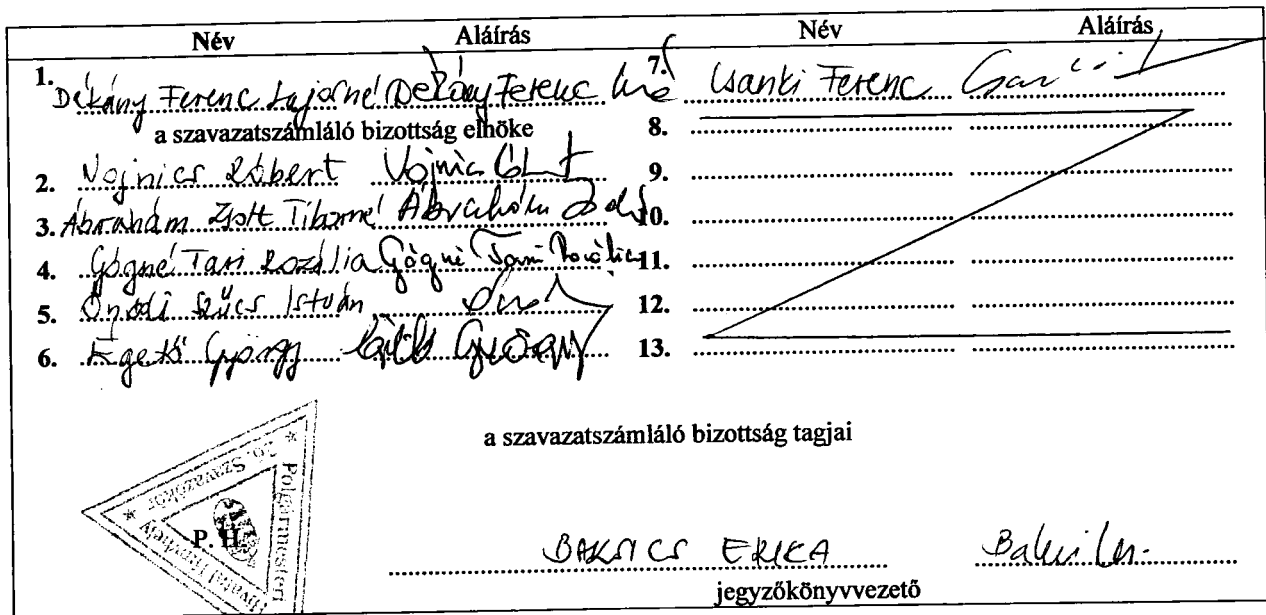 Név Aláírás Név Aláírás
1. Dékány Ferenc Lajosné Dékány Ferenc Lné 7. Csanki Ferenc
a szavazatszámláló bizottság elnöke 8.
2. Vojnics Róbert 9.
3. Ábrahám Zsolt Tiborné Ábrahám Zsolt 10.
4. Gógné Tari Rozália Gógné Tari Rozália 11.
5. Ónodi Szűcs István 12.
6. Égető György Égető György 13.
a szavazatszámláló bizottság tagjai
26. Szavazókör
Polgármesteri
P. H.
BAKSICS ERIKA
jegyzőkönyvvezető